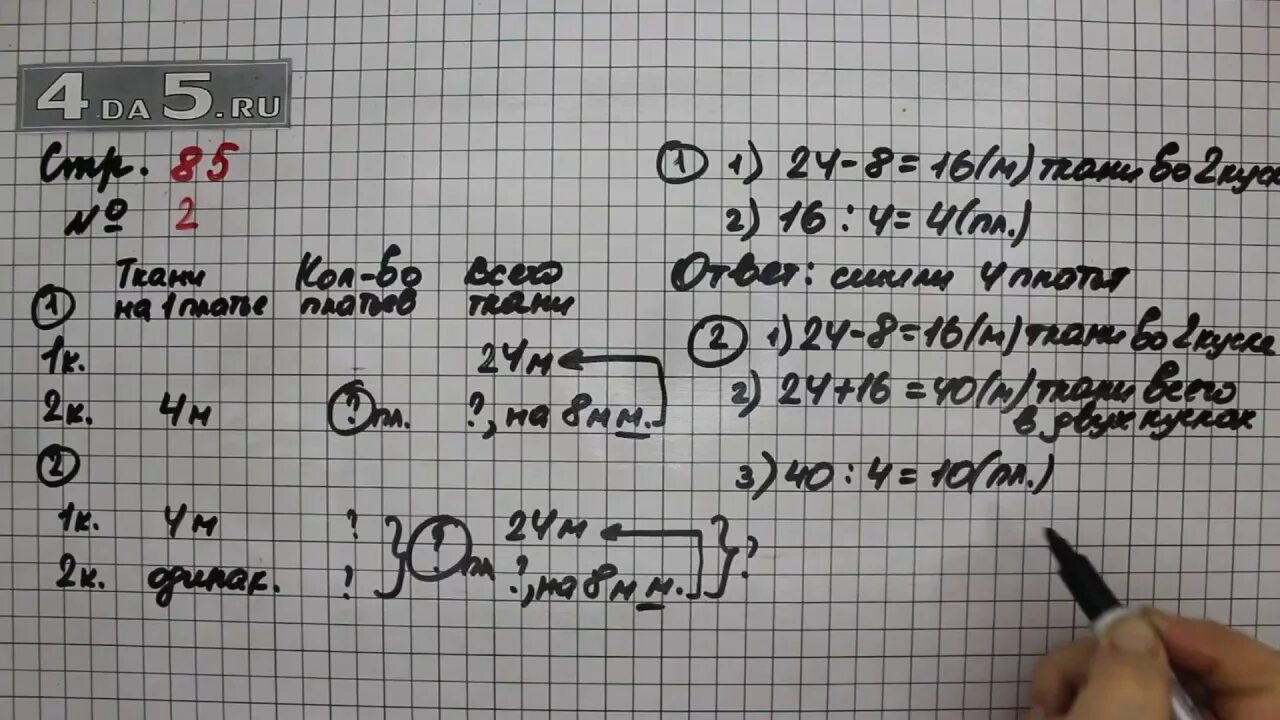 4DA5.RU
Стр. 85
№ 2
Ткани на 1 платье
Кол-во платьев
Всего ткани
1
1к. 24м
2к. 4м ? пл. ?, на 8м м.
2
1к. 4м ? 24м
2к. одинак. ? ? пл ?, на 8м м. ?
1 1) 24-8=16(м) ткани во 2 куск
2) 16:4=4(пл.)
Ответ: сшили 4 платья
2 1) 24-8=16(м) ткани во 2 куске
2) 24+16=40(м) ткани всего
в двух кусках
3) 40:4=10(пл.)